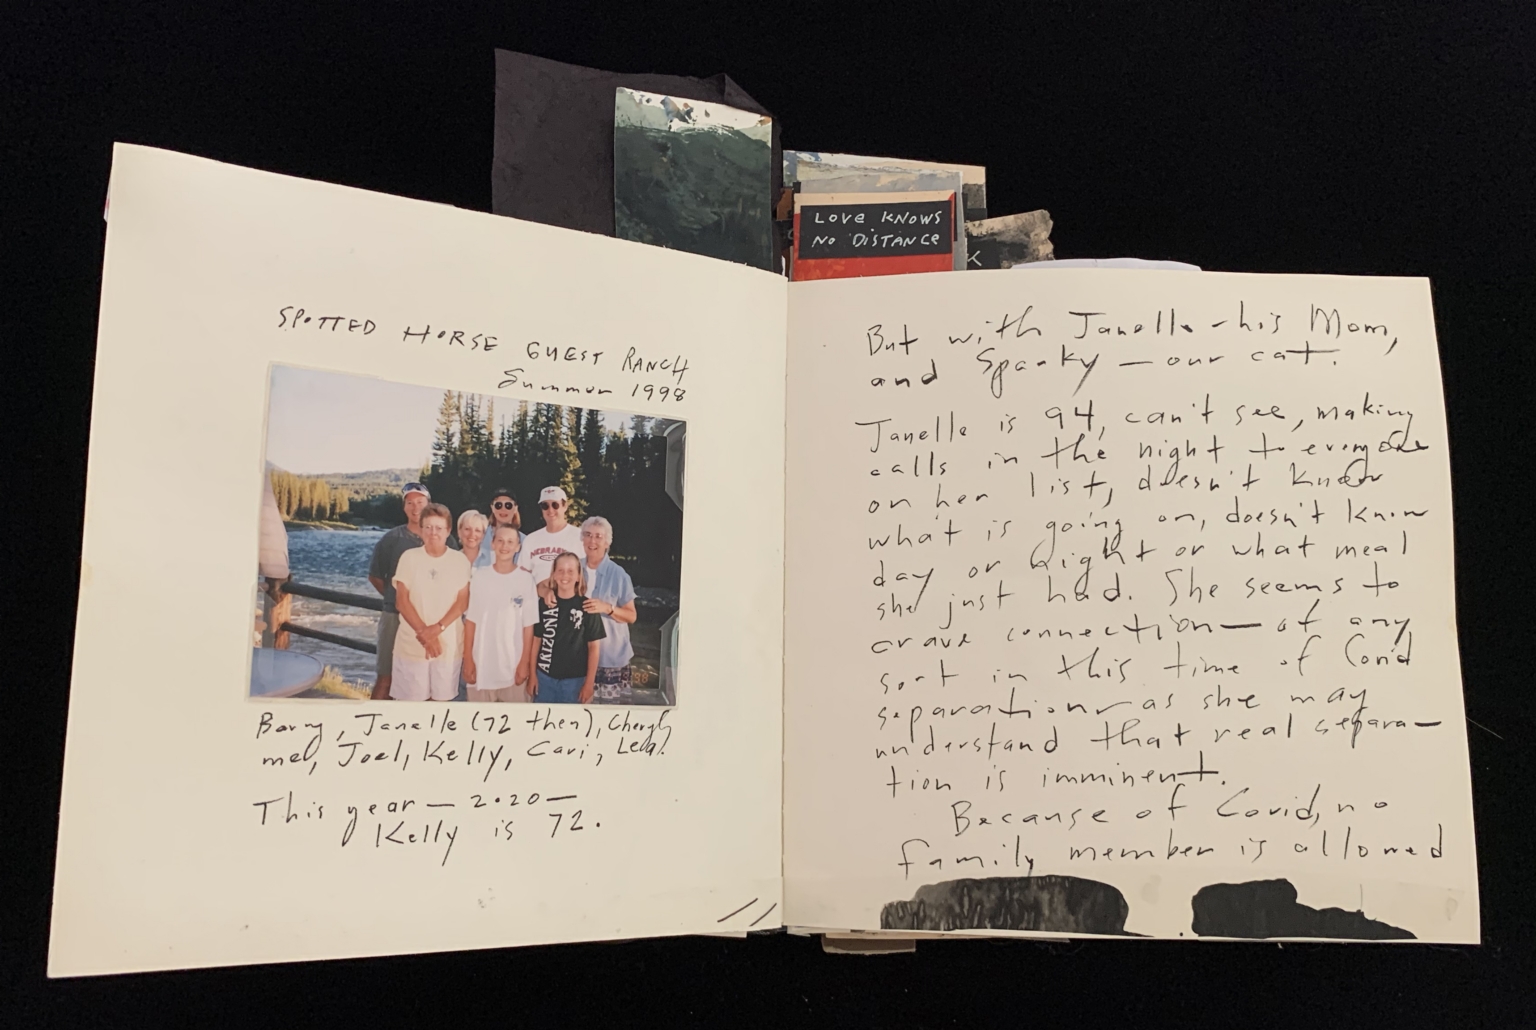 LOVE KNOWS
NO DISTANCE
K
SPOTTED HORSE GUEST RANCH
Summer 1998
NEBRASKA
ARIZONA
98
Barry, Janelle (72 then), Cheryl,
me, Joel, Kelly, Cari, Leal.
This year — 2020 —
Kelly is 72.
But with Janelle - his Mom,
and Spanky — our cat.
Janelle is 94, can't see, making
calls in the night to everyone
on her list, doesn't know
what is going on, doesn't know
day or night or what meal
she just had. She seems to
crave connection — of any
sort in this time of Covid
separation as she may
understand that real separa-
tion is imminent.
Because of Covid, no
family member is allowed